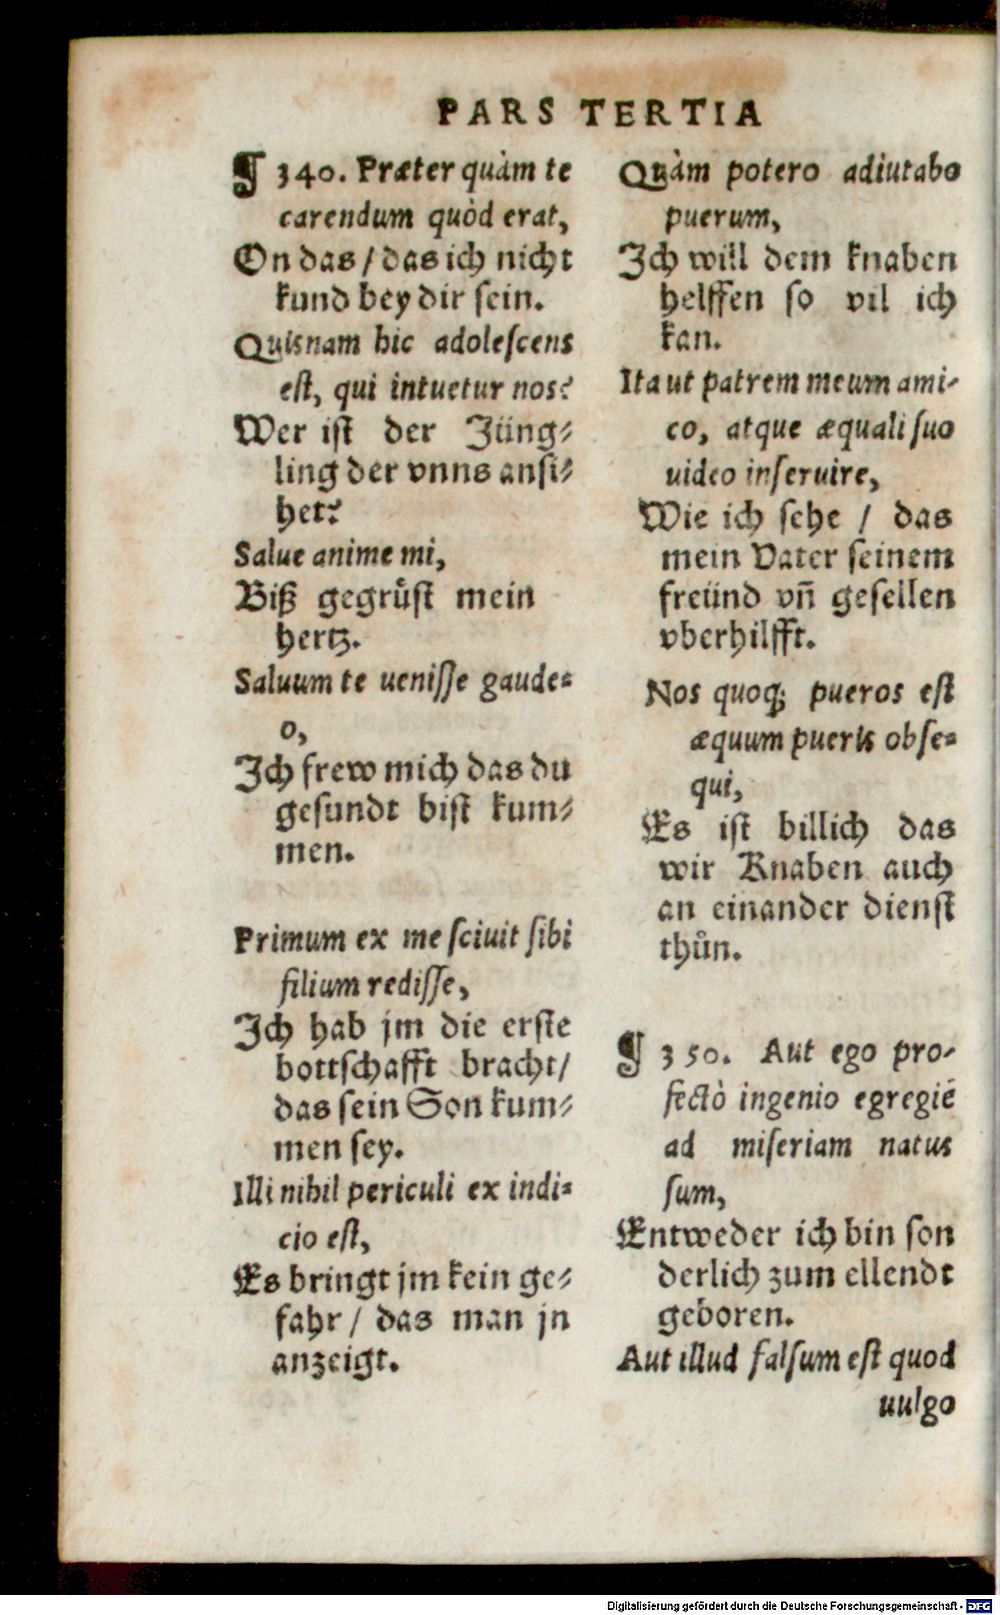 PARS TERTIA
¶ 340. Præter quàm te
carendum quòd erat,
On das / das ich nicht
kund bey dir sein.
Quisnam hic adolescens
est, qui intuetur nos?
Wer ist der Jüng⸗
ling der vnns ansi⸗
het?
Salue anime mi,
Biß gegrüst mein
hertz.
Saluum te uenisse gaude⸗
o,
Ich frew mich das du
gesundt bist kum⸗
men.
Primum ex me sciuit sibi
filium redisse,
Ich hab jm die erste
bottschafft bracht/
das sein Son kum⸗
men sey.
Illi nihil periculi ex indi⸗
cio est,
Es bringt jm kein ge⸗
fahr / das man jn
anzeigt.
Quàm potero adiutabo
puerum,
Ich will dem knaben
helffen so vil ich
kan.
Ita ut patrem meum ami⸗
co, atque æquali suo
uideo inseruire,
Wie ich sehe / das
mein Vater seinem
freünd vñ gesellen
vberhilfft.
Nos quoq; pueros est
æquum pueris obse⸗
qui,
Es ist billich das
wir Knaben auch
an einander dienst
thůn.
¶ 350. Aut ego pro⸗
fectò ingenio egregiè
ad miseriam natus
sum,
Entweder ich bin son
derlich zum ellendt
geboren.
Aut illud falsum est quod
uulgo
Digitalisierung gefördert durch die Deutsche Forschungsgemeinschaft - DFG